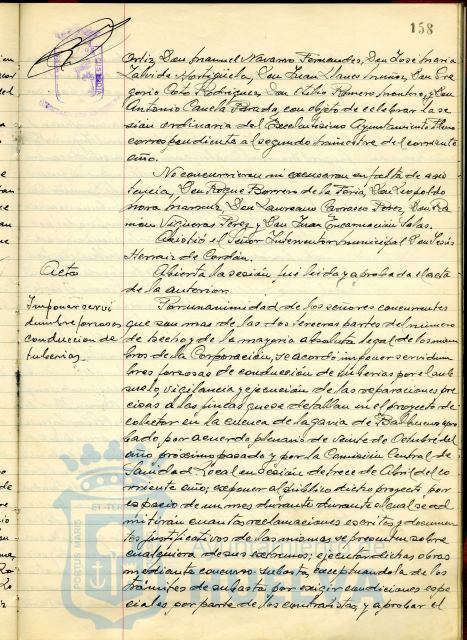 158
Ortiz, Don Manuel Navarro Fernandez, Don José Maria
Zalvide Hortigüela, Don Juan Llanes Muñoz, Don Gre
gorio Coto Rodriguez, Don Ovidio Romero Montero, y Don
Antonio Canela Parada, con objeto de celebrar la se
sion ordinaria del Excelentisimo Ayuntamiento Pleno
correspondiente al segundo trimestre del corriente
año.
No concurrieron ni excusaron su falta de asis
tencia, Don Roque Barrera de la Feria, Don Leopoldo
Mora Marmol, Don Laureano Carrasco Perez, Don Ra
mon Vigueras Pérez y Don Juan Encarnacion Salas.
Asistió el Señor Interventor municipal Don Jesús
Herraiz de Cordón.
Acta
Abierta la sesión, fué leida y aprobada el acta
de la anterior.
Imponer servi
dumbre forzosa
conduccion de
tuberias.
Por unanimidad de los señores concurrentes
que son mas de las dos terceras partes del número
de hecho y de la mayoria absoluta legal de los miem
bros de la Corporación, se acordó imponer servidum
bres forzosas de conducción de tuberias por el sub
suelo, vigilancia y ejecución de las reparaciones pre
cisas a las fincas que se detallan en el proyecto de
colector en la cuenca de la gavia de Balbueno apro
bado por acuerdo plenario de veinte de Octubre del
año próximo pasado y por la Comisión Central de
Sanidad Local en sesión de trece de Abril del co
rriente año; exponer al público dicho proyecto por
espacio de un mes durante durante el cual se ad
mitirán cuantas reclamaciones escritas y documen
tos justificativos de las mismas se presenten sobre
cualquiera de sus extremos; ejecutar dichas obras
mediante concurso subasta, exceptuandola de los
trámites de subasta por exigir condiciones espe
ciales por parte de los contratistas, y aprobar el